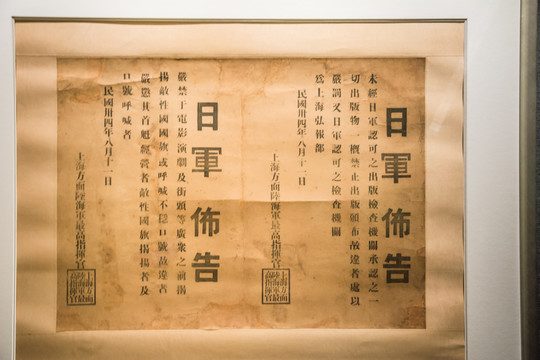 日軍佈告
未經日軍認可之出版檢查機關承認之一
切出版物一概禁止出版頒布故違者處以
嚴罰又日軍認可之檢查機關
為上海弘報部
民國卅四年八月十一日
上海方面陸海軍最高指揮官
上海方面陸海軍最高指揮官
日軍佈告
嚴禁于電影演劇及街頭等廣衆之前揚
揚敵性國國旗或呼喊不穩口號故違者
嚴懲其首魁經營者敵性國旗揚揚者及
口號呼喊者
民國卅四年八月十一日
上海方面陸海軍最高指揮官
上海方面陸海軍最高指揮官